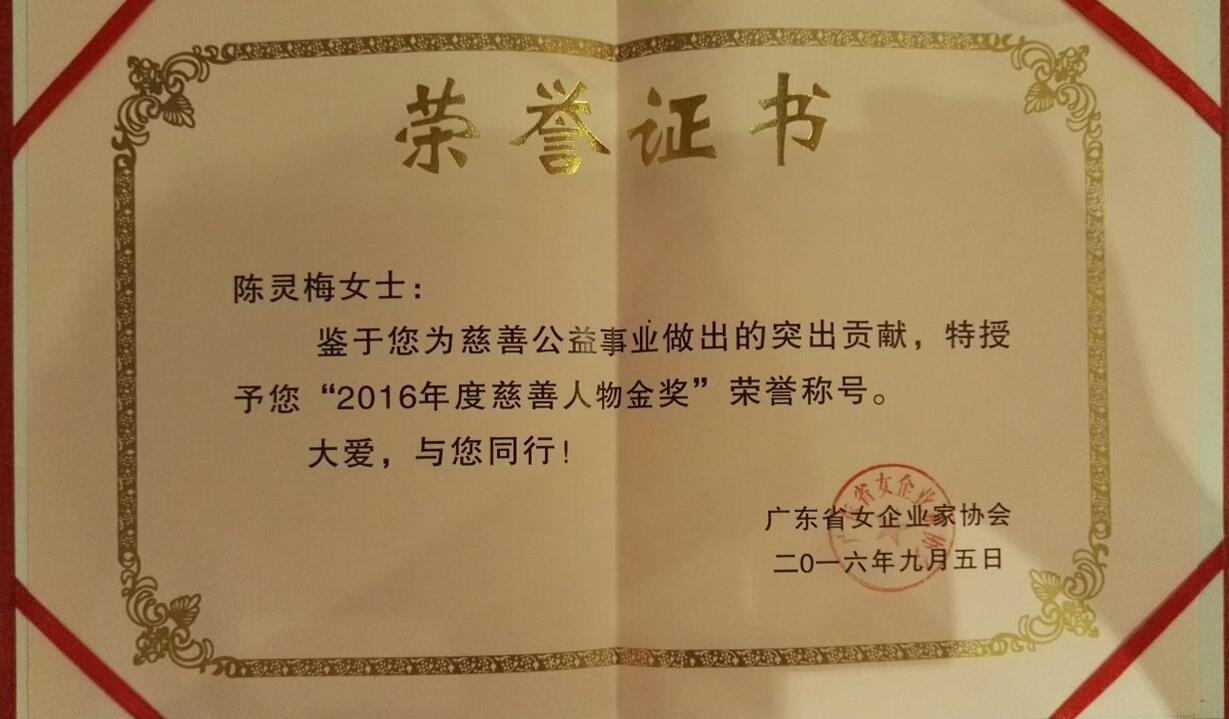 荣誉证书
陈灵梅女士：
鉴于您为慈善公益事业做出的突出贡献，特授
予您“2016年度慈善人物金奖”荣誉称号。
大爱，与您同行！
广东省女企业家协会
二0一六年九月五日
广东省女企业家协会